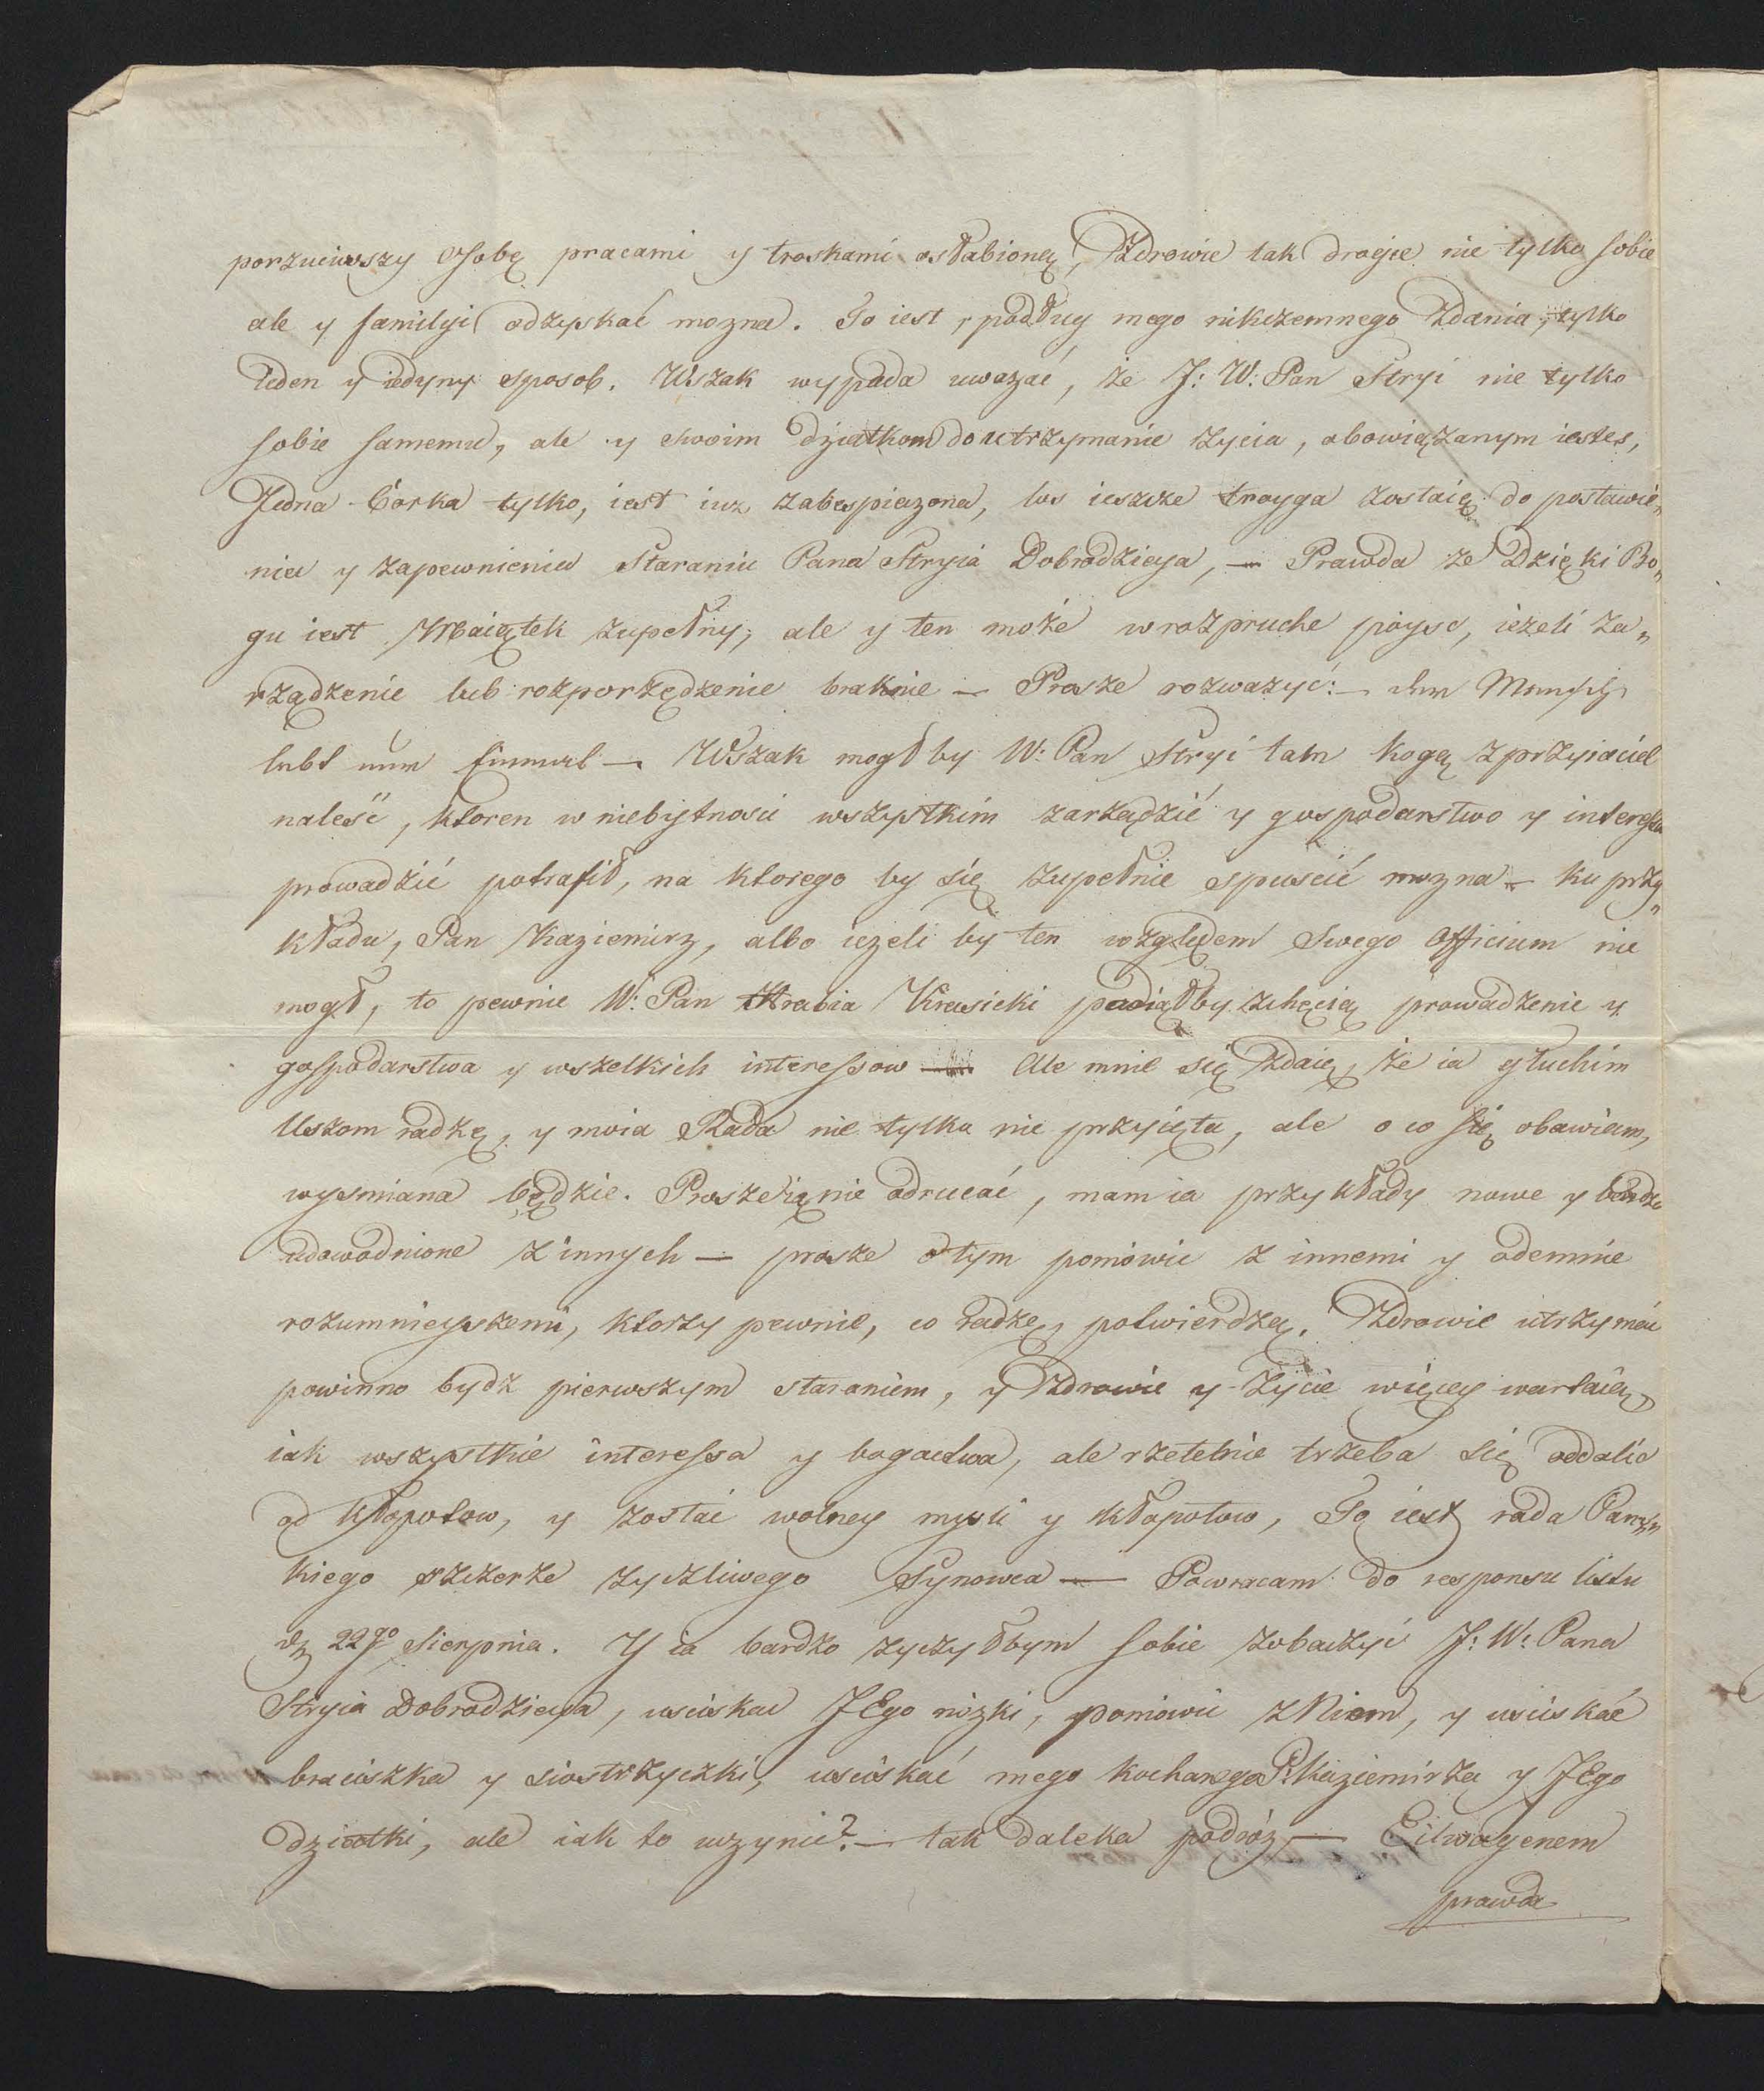 porzuciwszy Osobę pracami y troskami osłabioną, Zdrowie tak drogie nie tylko sobie
ale y familyi odzyskać mozna. To iest, podług mego nikczemnego Zdania, tylko
ieden y iedyny sposob. Wszak wypada uwazać, że J: W: Pan Stryi nie tylko
sobie samemu, ale y swoim dziatkom do utrzymanie zycia, obowiązanym iestes,
Jedna Corka tylko, iest iuz zabespieczona, los ieszcze troyga zostaię do postawie„
nia y zapewnienia Staraniu Pana Stryia Dobrodzieja, — Prawda ze Dzięki Bo„
gu iest Maiątek zupełny, ale y ten może w rozpruche póysc, ieżeli za„
rządzenie lub rozporzędzenie braknie — Prosze rozwazyć: — der Mensch
lebt nur einmal — Wszak mogłby W: Pan Stryi tam kogą z przyiaciel
naleść, ktoren w niebytnosci wszystkim zarządzić y gospodarstwo y interessa
prowadzić potrafił, na ktorego by się zupełnie spuscić mozna — ku przy„
kładu, Pan Kaziemirz, albo ieżeli by ten względem Swego Officium nie
mogł, to pewnie W: Pan Hrabia Krasicki podiąłby z chęcią prowadzenie y
gospodarstwa y wszelkich interessow — Ale mnie się zdaię, że ia głuchim
Uszom radzę, y moia Rada nie tylko nie przyięta, ale o co się obawiam,
wysmiana będzie. Prosze ią nie odrucać, mam ia przykłady nowe y bardzo
udowodnione z innych — prosze o tym pomówic z innemi y odemnie
rozumnieyszemi, ktorzy pewnie, co radzę, potwierdzą. Zdrowie utrzymać
powinno bydz pierwszym staraniem, y Zdrowie y Życie więcey wartaią,
iak wszystkie interessa y bogactwa, ale rzetelnie trzeba się oddalic
od kłopotow, y zostać wolney mysli y kłopotow, To iest rada Pańs„
kiego szczerze zyczliwego Synowca — Powracam do responsu listu
dz 22go Sierpnia. Y ia bardzo zyczyłbym sobie zobaczyć J: W: Pana
Stryia Dobrodzieja, usciskac JEgo nózki, pomówic z Niem, y usciskać
braciszka y siostrzyczki, usciskać mego kochanego P: Kaziemirza y JEgo
dziatki, ale iak to uczynic? — tak daleka podróz — Eilwagenem
prawda